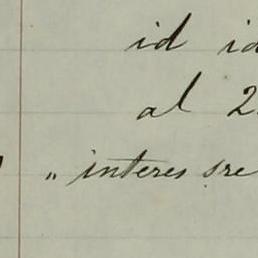 id id
al 2
" interes sre